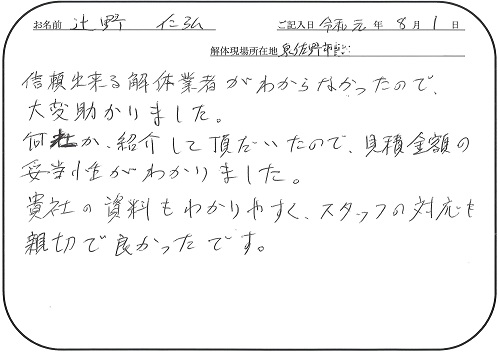 お名前 辻野 仁弘 ご記入日 令和元年 8月 1日
解体現場所在地 泉佐野市
信頼出来る解体業者がわからなかったので、
大変助かりました。
何社か、紹介して頂だいたので、見積金額の
妥当性がわかりました。
貴社の資料もわかりやすく、スタッフの対応も
親切で良かったです。